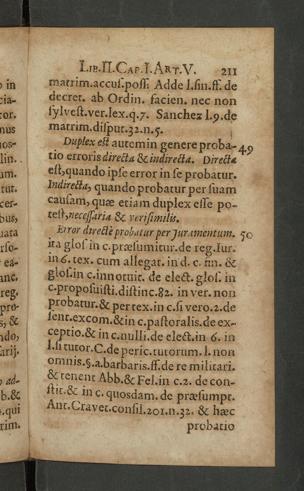 LIB.II.CAP.I.ART.V. 211
matrim.accus.poss. Adde l.fin.ff.de
decret. ab Ordin. facien. nec non
sylvest.ver.lex.q.7. Sanchez l.9.de
matrim.disput.32.n.5.
Duplex est autem in genere proba- 49
tio erroris directa & indirecta. Directa
est, quando ipse error in se probatur.
Indirecta, quando probatur per suam
causam, quæ etiam duplex esse po-
test, necessaria & verisimilis.
Error directè probatur per Juramentum. 50
ita glos in c.præsumitur.de reg.Jur.
in 6. tex. cum allegat. in d. c. nn. &
glos.in c.innotuit. de elect. glos. in
c.proposuisti.distinc.82. in ver. non
probatur.& per tex.in c.si vero.2.de
sent.excom.& in c.pastoralis.de ex-
ceptio.& in c.nulli.de elect.in 6. in
l.si tutor.C.de peric.tutorum.l.non
omnis.§.a.barbaris.ff.de re militari.
& tenent Abb.& Fel.in c.2. de con-
stit.& in c. quosdam. de præsumpt.
Ant.Cravet.consil.201.n.32. & hæc
probatio
o in
cia-
tor.
nus
nos-
lin.
um.
tut.
cer-
bus,
uata
rso-
ea-
anc.
reg.
pro-
s, &
ndo,
arij.
ad-
b.&
s.qui
rim.